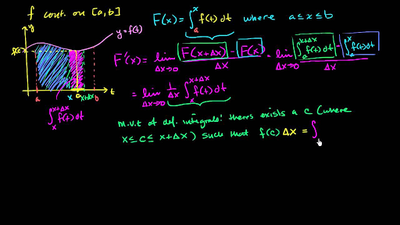 f cont. on [a,b]
F(x) = ∫ₐˣ f(t) dt where a ≤ x ≤ b
y
y = f(t)
a x x+Δx b t
F'(x) = lim Δx→0 F(x+Δx) - F(x) / Δx = lim Δx→0 ∫ₐˣ⁺Δˣ f(t) dt - ∫ₐˣ f(t) dt / Δx
= lim Δx→0 1/Δx ∫ₓˣ⁺Δˣ f(t) dt
∫ₓˣ⁺Δˣ f(t) dt
m.v.t of def. integrals: there exists a c (where
x ≤ c ≤ x+Δx) such that f(c) Δx = ∫